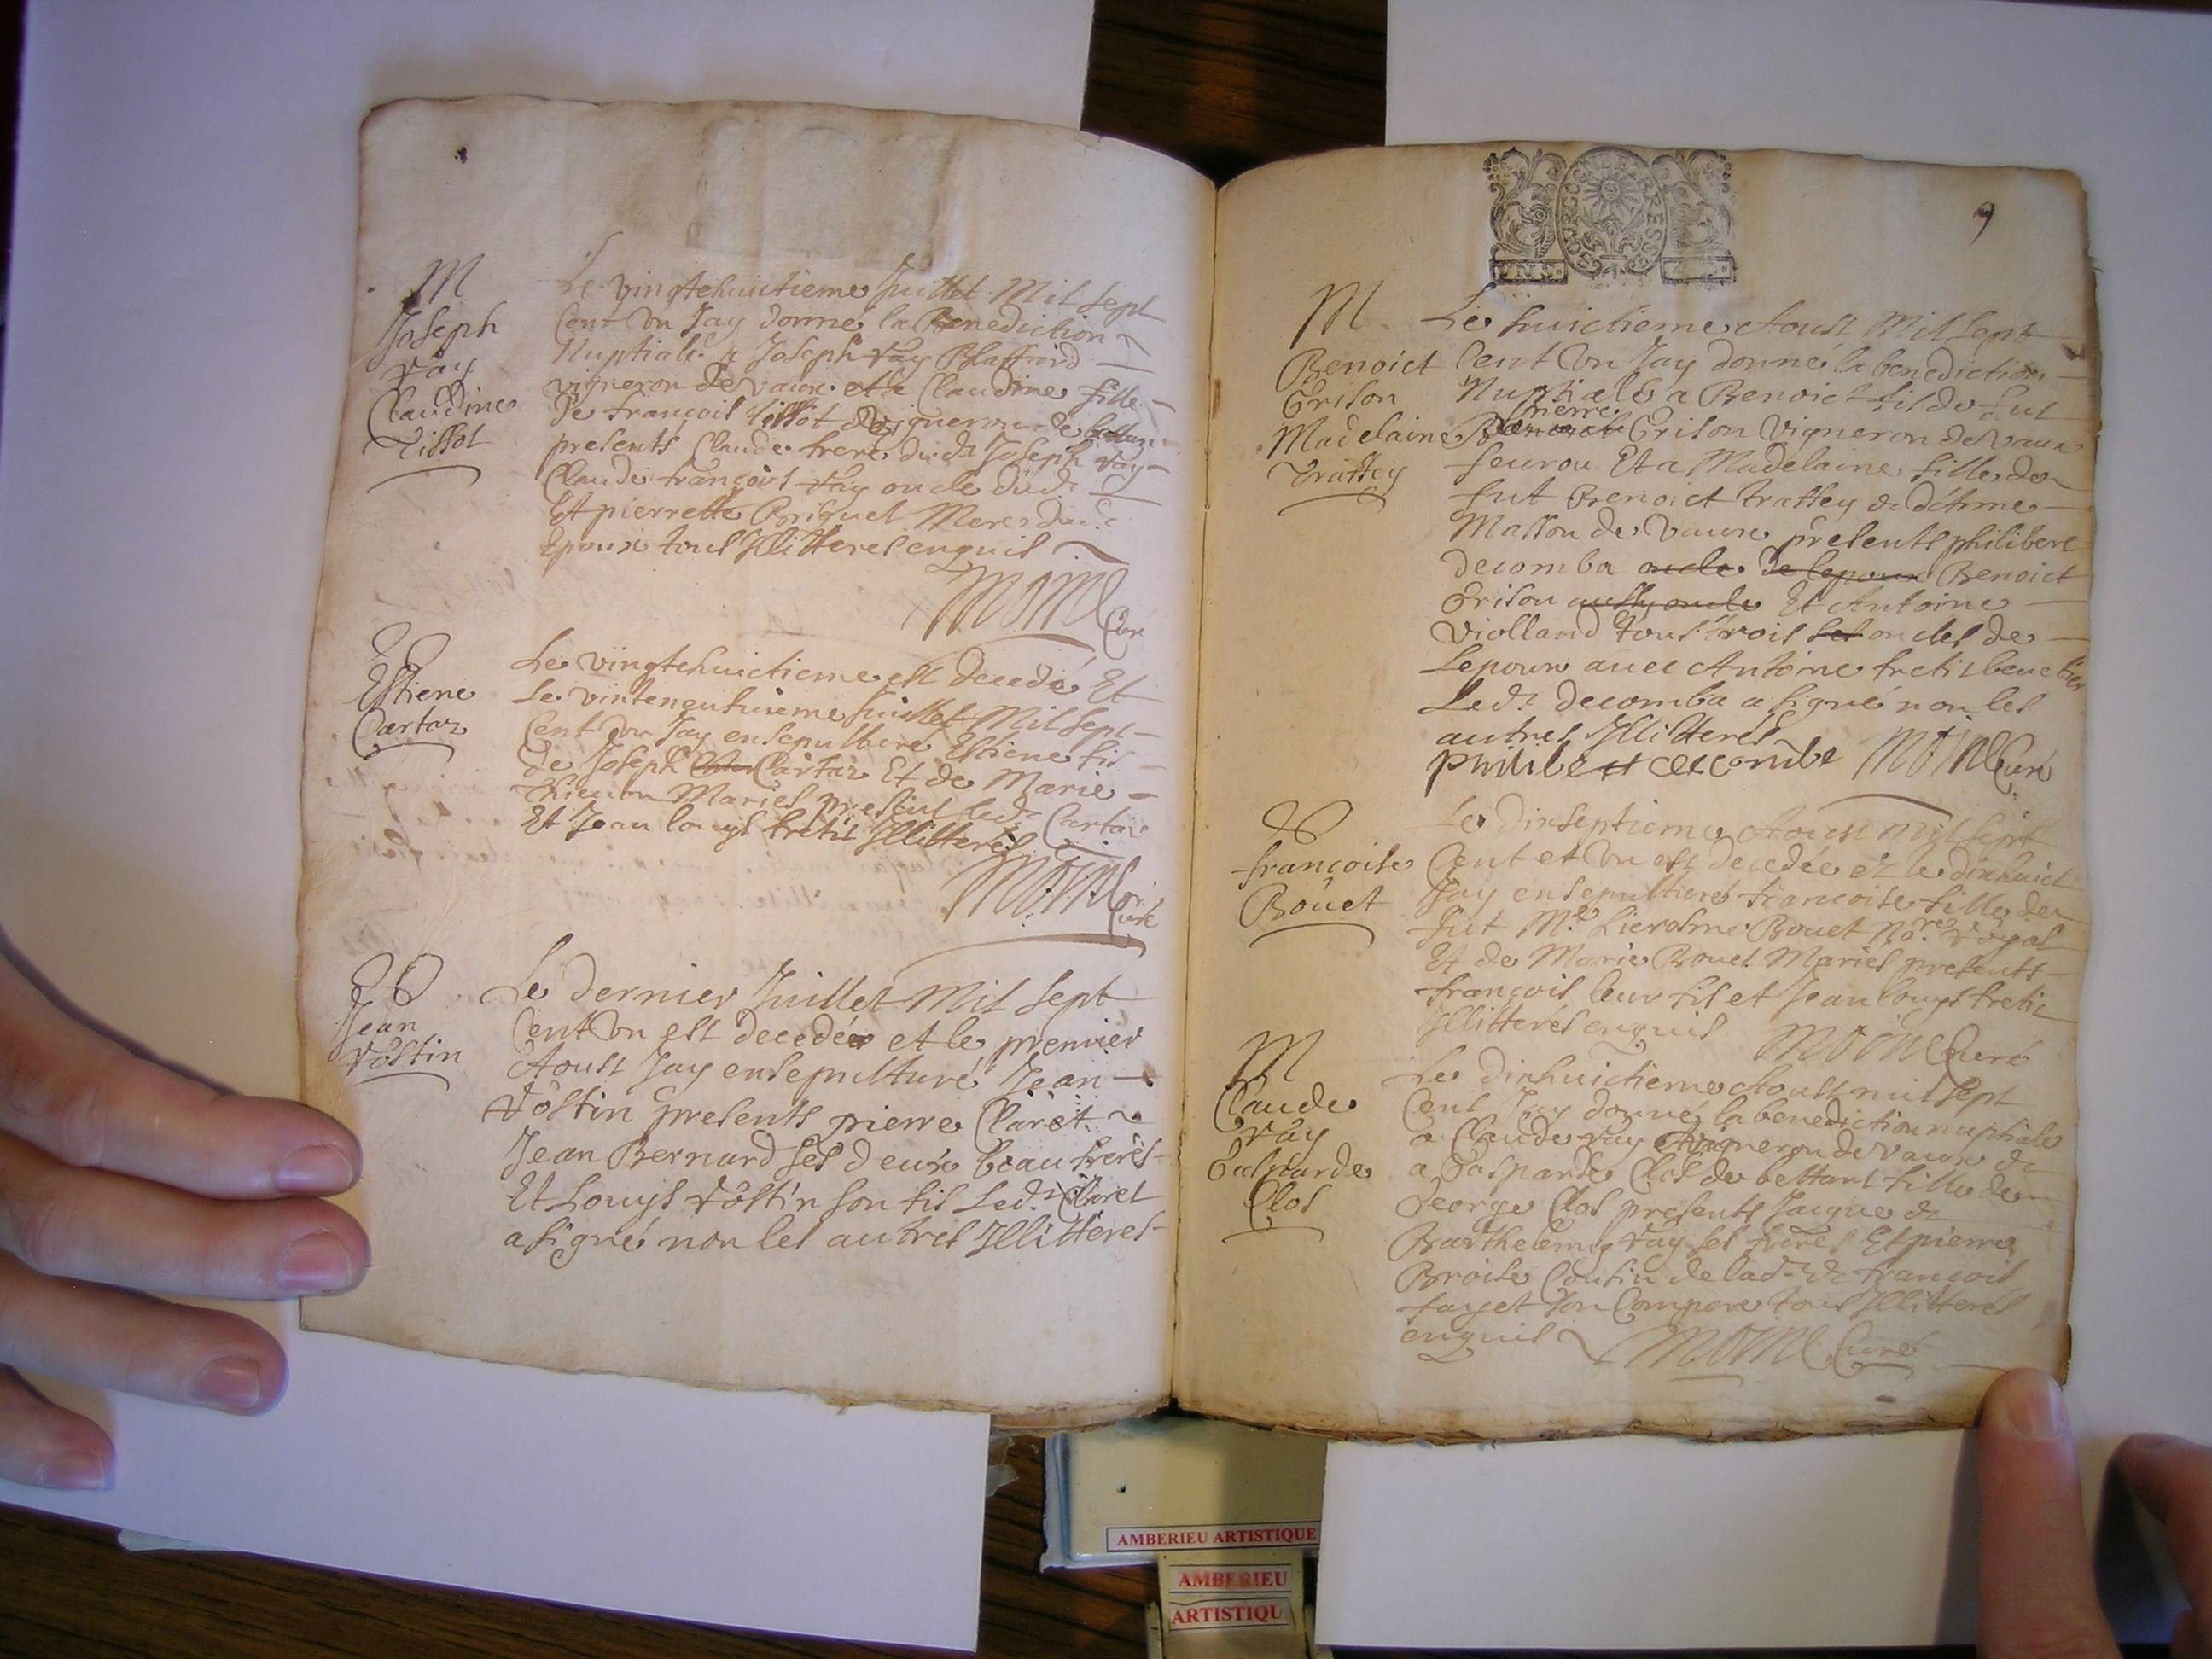 M
Joseph
Vay
Claudine
Tissot
Le vingtehuictieme Juillet Mil sept
Cent Vn Jay donné la Benediction
Nuptiale a Joseph Vay Blaffard
vigneron de vaux et a Claudine fille
de françois tissot vigneron de bettan
presents Claude frere dud. Joseph Vay
Claude françois Vay oncle dud.
Et pierrette Briquet Mere dud.
Epoux tous Illitteres enquis
Moine Curé
Estiene
Cartaz
Le vingtehuictieme est decedé Et
Le vinteneufuieme Juillet Mil sept
Cent Vn Jay ensepulturé Estiene fils
de Joseph Cartaz Et de Marie
Mariés present led. Cartaz
Et Jean louys fretis Illitterés
Moine Curé
Jean
Vôstin
Le dernier Juillet Mil sept
Cent Vn est decedé et le premier
Aoust Jay ensepulturé Jean
Vôstin presents pierre Claret
Jean Bernard ses deux beau freres
Et Louys Vôstin son fils Led. Claret
a signé non les autres Illitteres
9
BOVRGOGNE BRESSE
M
Benoict
Grison
Madelaine
Traffey
Le huictieme Aoust Mil sept
Cent Vn Jay donné la benediction
Nuptiale a Benoict fils de fut
pierre
Benoict Grison Vigneron de Vaux
feurou Et a Madelaine fille de
fut Benoict traffey
Masson de Vaux presents philibert
decomba oncle de lepoux Benoict
Grison aussy oncle Et Antoine
Violland tous trois ses oncles de
Lepoux auec Antoine fretis
Led. decomba a signé non les
autres Illitterés
philibert decombe Moine Curé
françoise
Boüet
Le dixseptieme Aoust mil sept
Cent et Vn est decedée et le dixhuict
Jay ensepulturé françoise fille de
fut Me. Hierosme Bouet Nore. Royal
Et de Marie Bouet Mariés presents
françois leur fils et Jean louys fretis
Illitterés enquis Moine Curé
M
Claude
Vay
Gasparde
Clos
Le dixhuictieme Aoust mil sept
Cent Jay donné la benediction nuptiale
a Claude Vay vigneron de vaux &
a Gasparde Clos de bettant fille de
George Clos presents Jaique &
Barthelemy Vay ses freres Et pierre
Broise Cousin de lad. & françois
fayet son Compere tous Illitterés
enquis Moine Curé
AMBERIEU ARTISTIQUE
AMBERIEU
ARTISTIQU